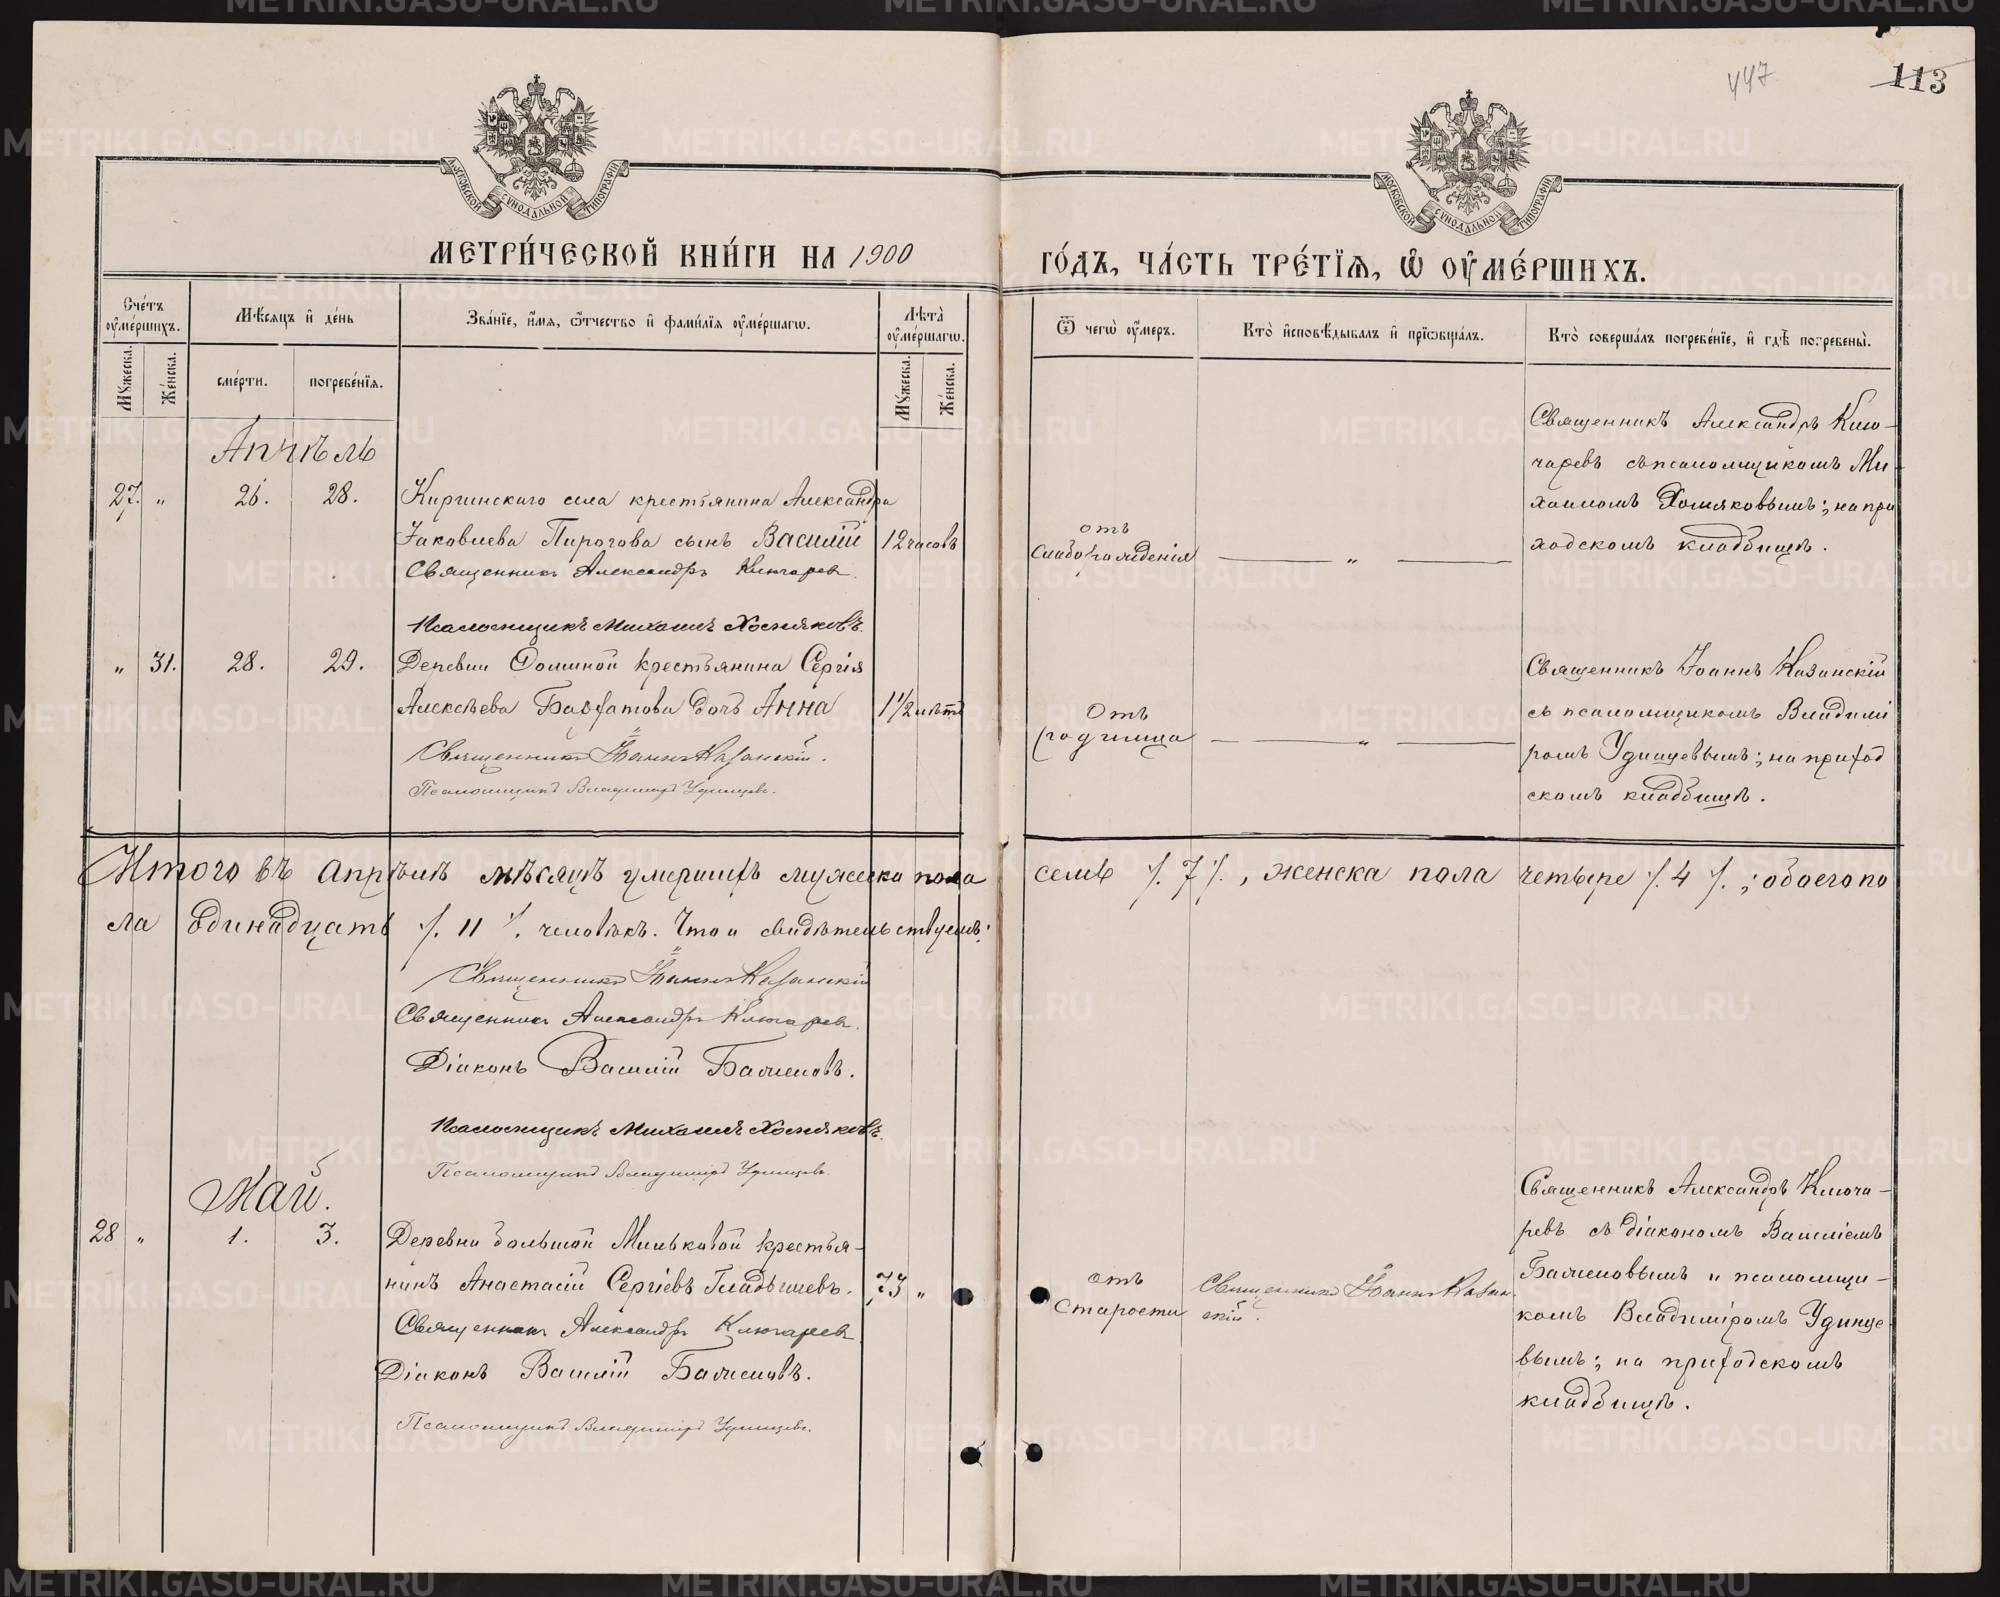 447
113
МОСКОВСКОЙ СѴНОДАЛЬНОЙ ТИПОГРАФІИ
МОСКОВСКОЙ СѴНОДАЛЬНОЙ ТИПОГРАФІИ
МЕТРИ́ЧЕСКОЙ КНИ́ГИ НА 1900
ГО́ДЪ, ЧА́СТЬ ТРЕ́ТЇѦ, Ѽ ОУ҆МЕ́РШИХЪ.
Сче́тъ оу҆ме́ршихъ.
Мѣ́сяцъ и҆ де́нь
Зва́нїе, и҆́мѧ, ѻ҆́тчество и҆ фами́лїѧ оу҆ме́ршагѡ.
Лѣ́та оу҆ме́ршагѡ.
Мꙋ́жеска.
Же́нска.
сме́рти.
погребе́нїѧ.
Мꙋ́жеска.
Же́нска.
Ѿ чегѡ̀ оу҆́меръ.
Кто̀ и҆сповѣ́дывалъ и҆ прїѡбща́лъ.
Кто̀ соверша́лъ погребе́нїе, и҆ гдѣ̀ погребены̀.
Апрѣль
27. " 26. 28. Киргинскаго села крестьянина Александра
Іаковлева Пирогова сынъ Василій 12 часовъ
Священникъ Александръ Ключаревъ
Псаломщикъ Михаилъ Хомяковъ.
отъ
слаборожденія
"
Священникъ Александръ Клю-
чаревъ съ псаломщикомъ Ми-
хаиломъ Хомяковымъ; на при
ходскомъ кладбищѣ.
" 31. 28. 29. Деревни Ѳоминой крестьянина Сергія
Алексѣева дочь Анна 1 1/2 лѣтъ
Священникъ Іоаннъ Казанскій.
Псаломщикъ Владиміръ Удинцевъ.
Отъ
родимца
"
Священникъ Іоаннъ Казанскій
съ псаломщикомъ Владимі
ромъ Удинцевымъ; на приход
скомъ кладбищѣ.
Итого въ апрѣлѣ мѣсяцѣ умершихъ мужеска пола
семь /. 7 /. , женска пола четыре /. 4 /. ; обоего по
ла одинадцать /. 11 /. человѣкъ. Что и свидѣтельствуемъ:
Священникъ Іоаннъ Казанскій
Священникъ Александръ Ключаревъ.
Діаконъ Василій Балакинъ.
Псаломщикъ Михаилъ Хомяковъ.
Псаломщикъ Владиміръ Удинцевъ.
Май.
28 " 1. 3. Деревни большой Мильковой крестья-
нинъ Анастасій Сергіевъ Гладышевъ. 73 "
Священникъ Александръ Ключаревъ
Діаконъ Василій
Псаломщикъ Владиміръ Удинцевъ.
отъ
старости
Священникъ Іоаннъ Казан
скій.
Священникъ Александръ Ключа-
ревъ съ діакономъ Василіемъ
и псаломщи-
комъ Владиміромъ Удинце
вымъ; на приходскомъ
кладбищѣ.